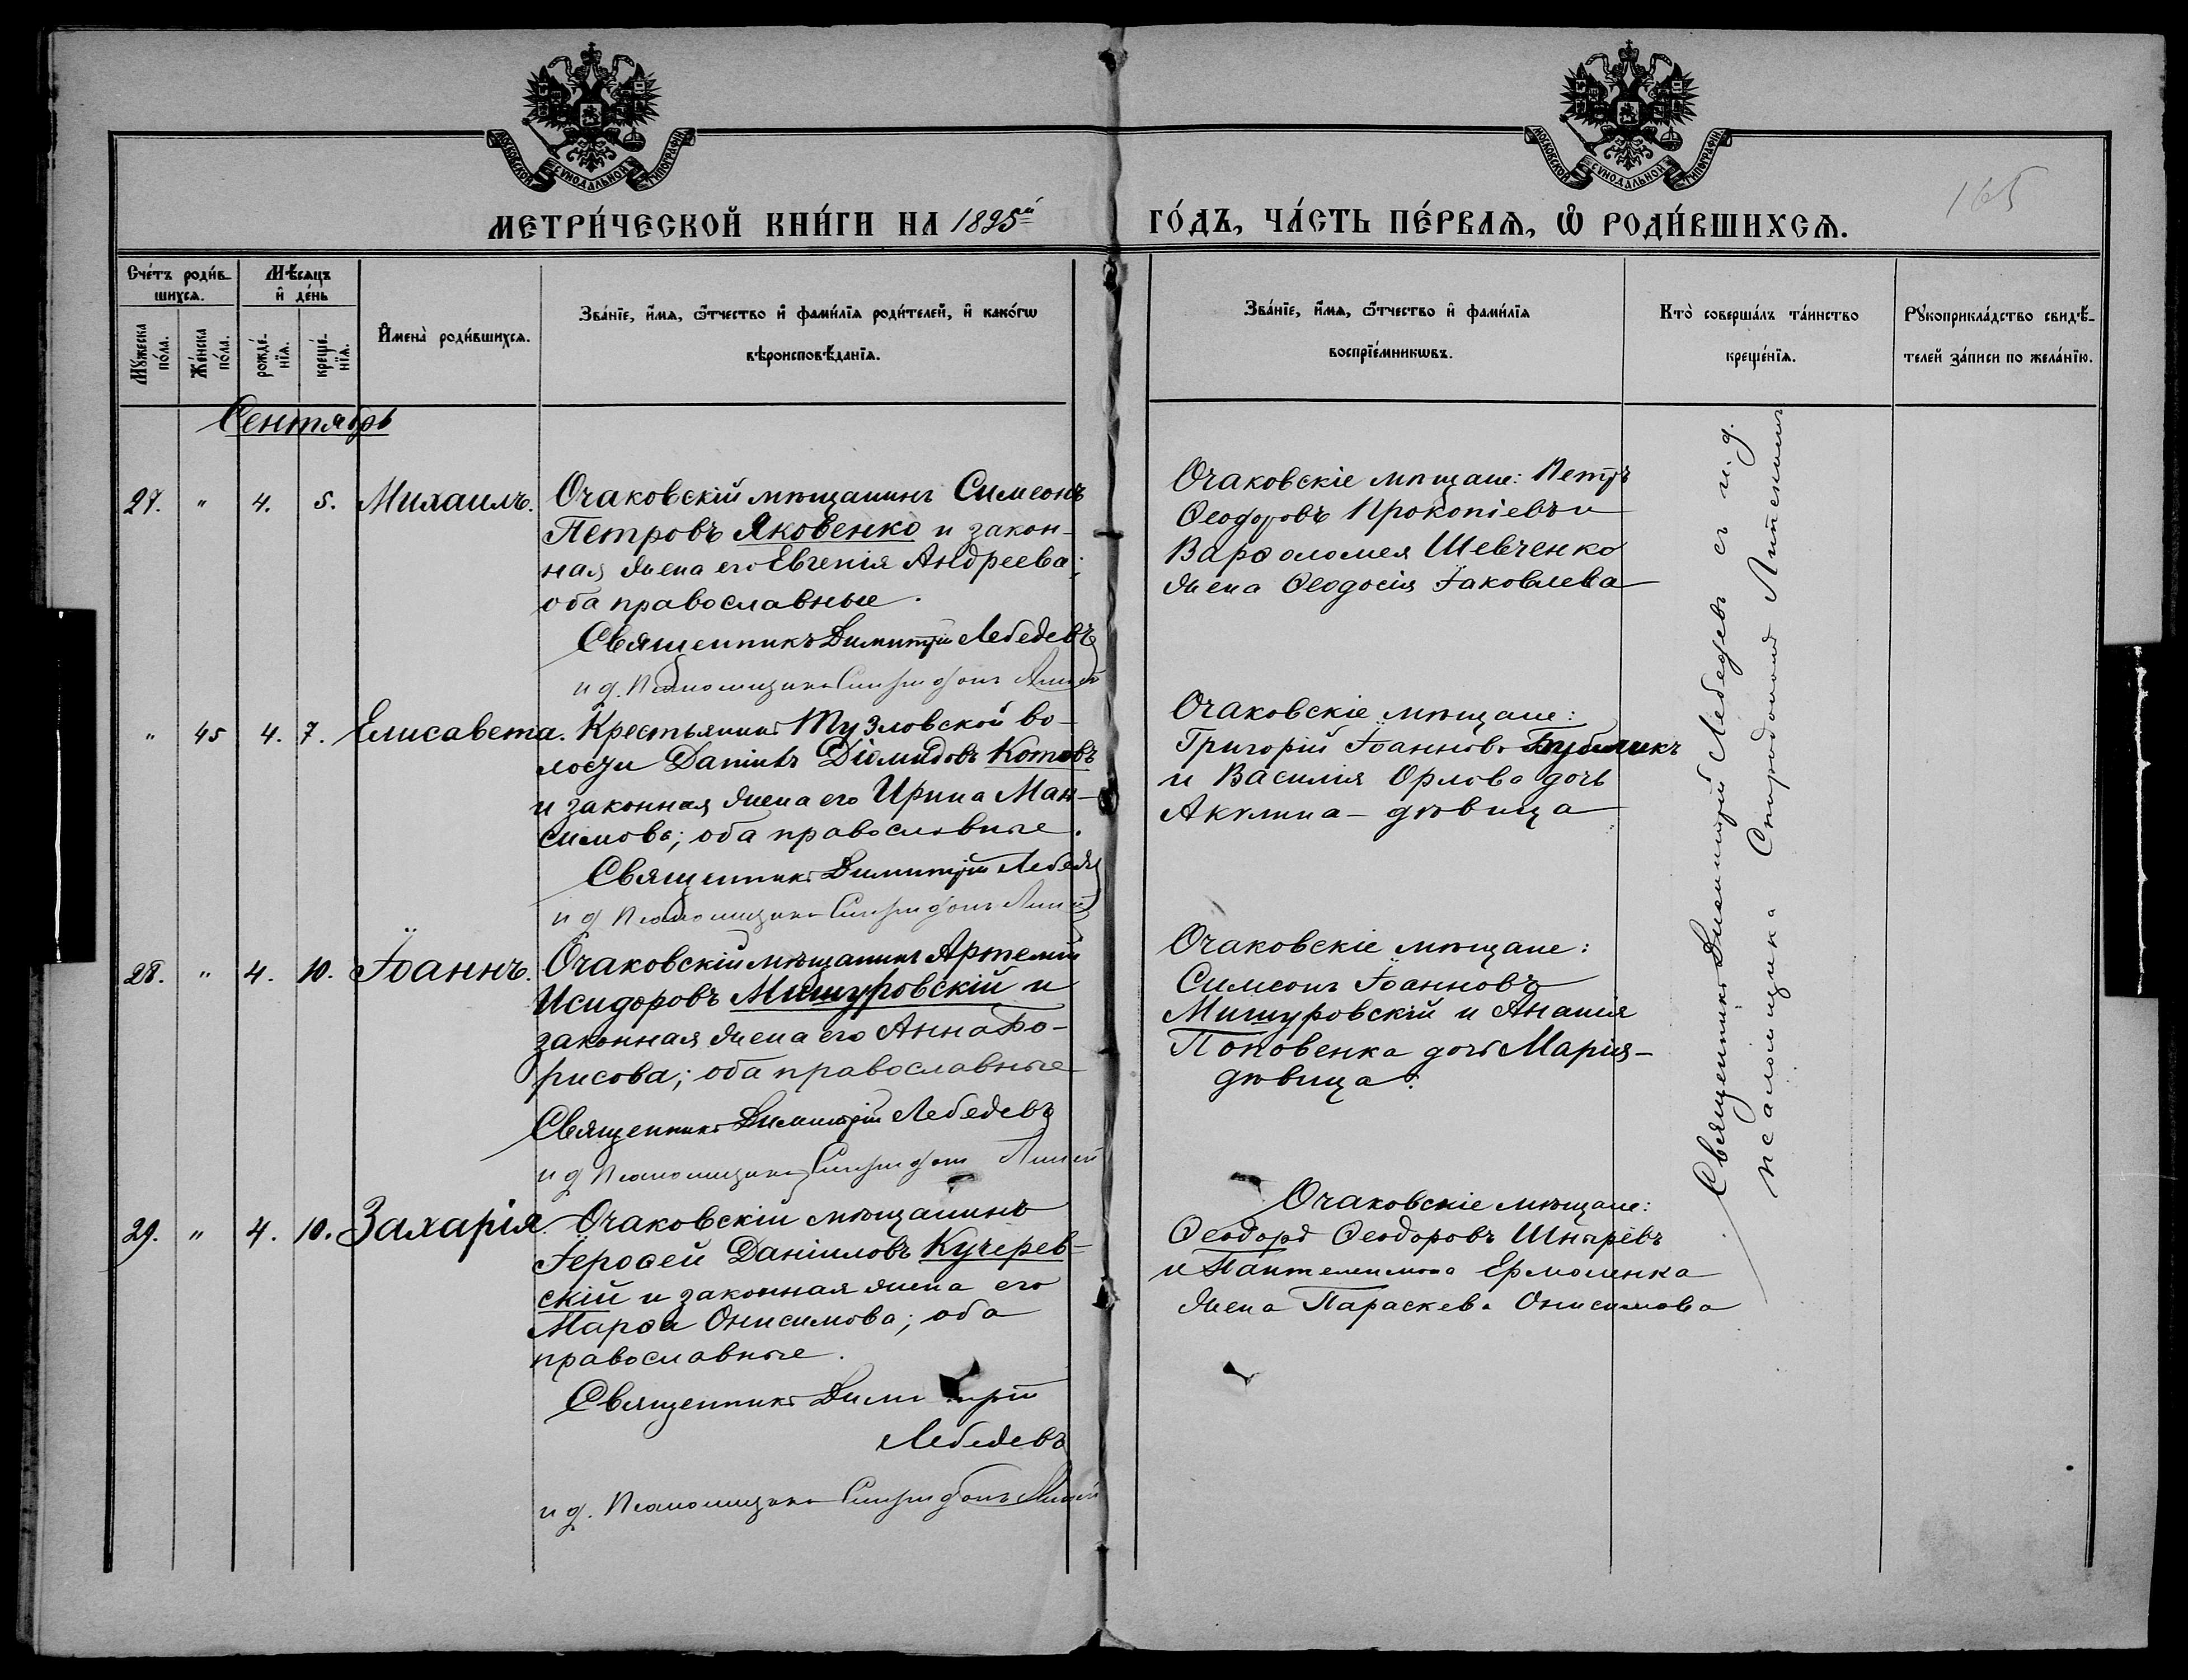 МОСКОВСКОЙ СѴНОДАЛЬНОЙ ТИПОГРАФІИ
МОСКОВСКОЙ СѴНОДАЛЬНОЙ ТИПОГРАФІИ
165
МЕТРИ́ЧЕСКОЙ КНИ́ГИ НА 1895й ГО́ДЪ, ЧА́СТЬ ПЕ́РВАѦ, Ѡ҆ РОДИ́ВШИХСѦ.
Сче́тъ роди́в-
шихсѧ.
Мѣ́сѧцъ
и҆ де́нь
Мꙋ́жеска
по́ла.
Же́нска
по́ла.
рожде́-
нїѧ.
креще́-
нїѧ.
И҆мена̀ роди́вшихсѧ.
Зва́нїе, и҆́мѧ, ѻ҆́тчество и҆ фами́лїѧ роди́телей, и҆ како́гѡ
вѣроисповѣ́данїѧ.
Зва́нїе, и҆́мѧ, ѻ҆́тчество и҆ фами́лїѧ
воспрїе́мникѡвъ.
Кто̀ соверша́лъ та́инство
креще́нїѧ.
Рꙋкоприкла́дство свидѣ́-
телей за́писи по жела́нїю.
Сентябрь
27. " 4. 5. Михаилъ.
Очаковскій мѣщанинъ Симеонъ
Петровъ Яковенко и закон-
ная жена его Евгенія Андреева;
оба православные.
Священникъ Димитрій Лебедевъ
и д. Псаломщика Спиридонъ
Очаковскіе мѣщане: Петръ
Ѳеодоровъ Прокопіевъ и
Варѳоломея Шевченко
жена Ѳеодосія Іаковлева
" 45 4. 7. Елисавета.
Крестьянинъ Тузловской во-
лости Даніилъ Діомидовъ Котовъ
и законная жена его Ирина Мак-
симова; оба православные.
Священникъ Димитрій Лебедевъ
и д Псаломщика Спиридонъ
Очаковскіе мѣщане:
Григорій Іоанновъ Бубликъ
и Василія Орлова дочь
Акулина - дѣвица
28. " 4. 10. Іоаннъ.
Очаковскій мѣщанинъ Артемій
Исидоровъ Мишуровскій и
законная жена его Анна Бо-
рисова; оба православные
Священникъ Димитрій Лебедевъ
и д Псаломщика Спиридонъ
Очаковскіе мѣщане:
Симеонъ Іоанновъ
Мишуровскій и Ананія
Поповенка дочь Марія-
дѣвица.
29. " 4. 10. Захарія.
Очаковскій мѣщанинъ
Іероѳей Даніиловъ Кучерев-
скій и законная жена его
Марѳа Онисимова; оба
православные.
Священникъ Димитрій
Лебедевъ
и д. Псаломщика Спиридонъ
Очаковскіе мѣщане:
Ѳеодоръ Ѳеодоровъ Шныревъ
и Пантелеимона Ермоленка
жена Параскева Онисимова
Священникъ Димитрій Лебедевъ съ и. д.
псаломщика Спиридономъ